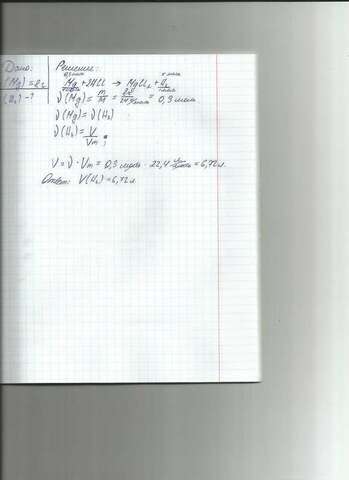 Дано:
(Mg) = 8г
(H₂) - ?
Решение:
0,3 моль x моль
Mg + 2HCl → MgCl₂ + H₂
1 моль
ν(Mg) = m/M = 8г / 24 г/моль = 0,3 моль
ν(Mg) = ν(H₂)
ν(H₂) = V/Vm ;
V = ν · Vm = 0,3 моль · 22,4 л/моль = 6,72 л.
Ответ: V(H₂) = 6,72 л